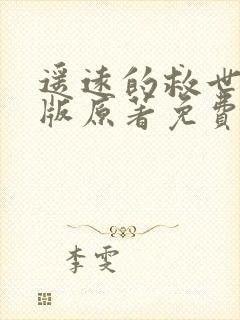 遥远的救世
版原著免费
李雯